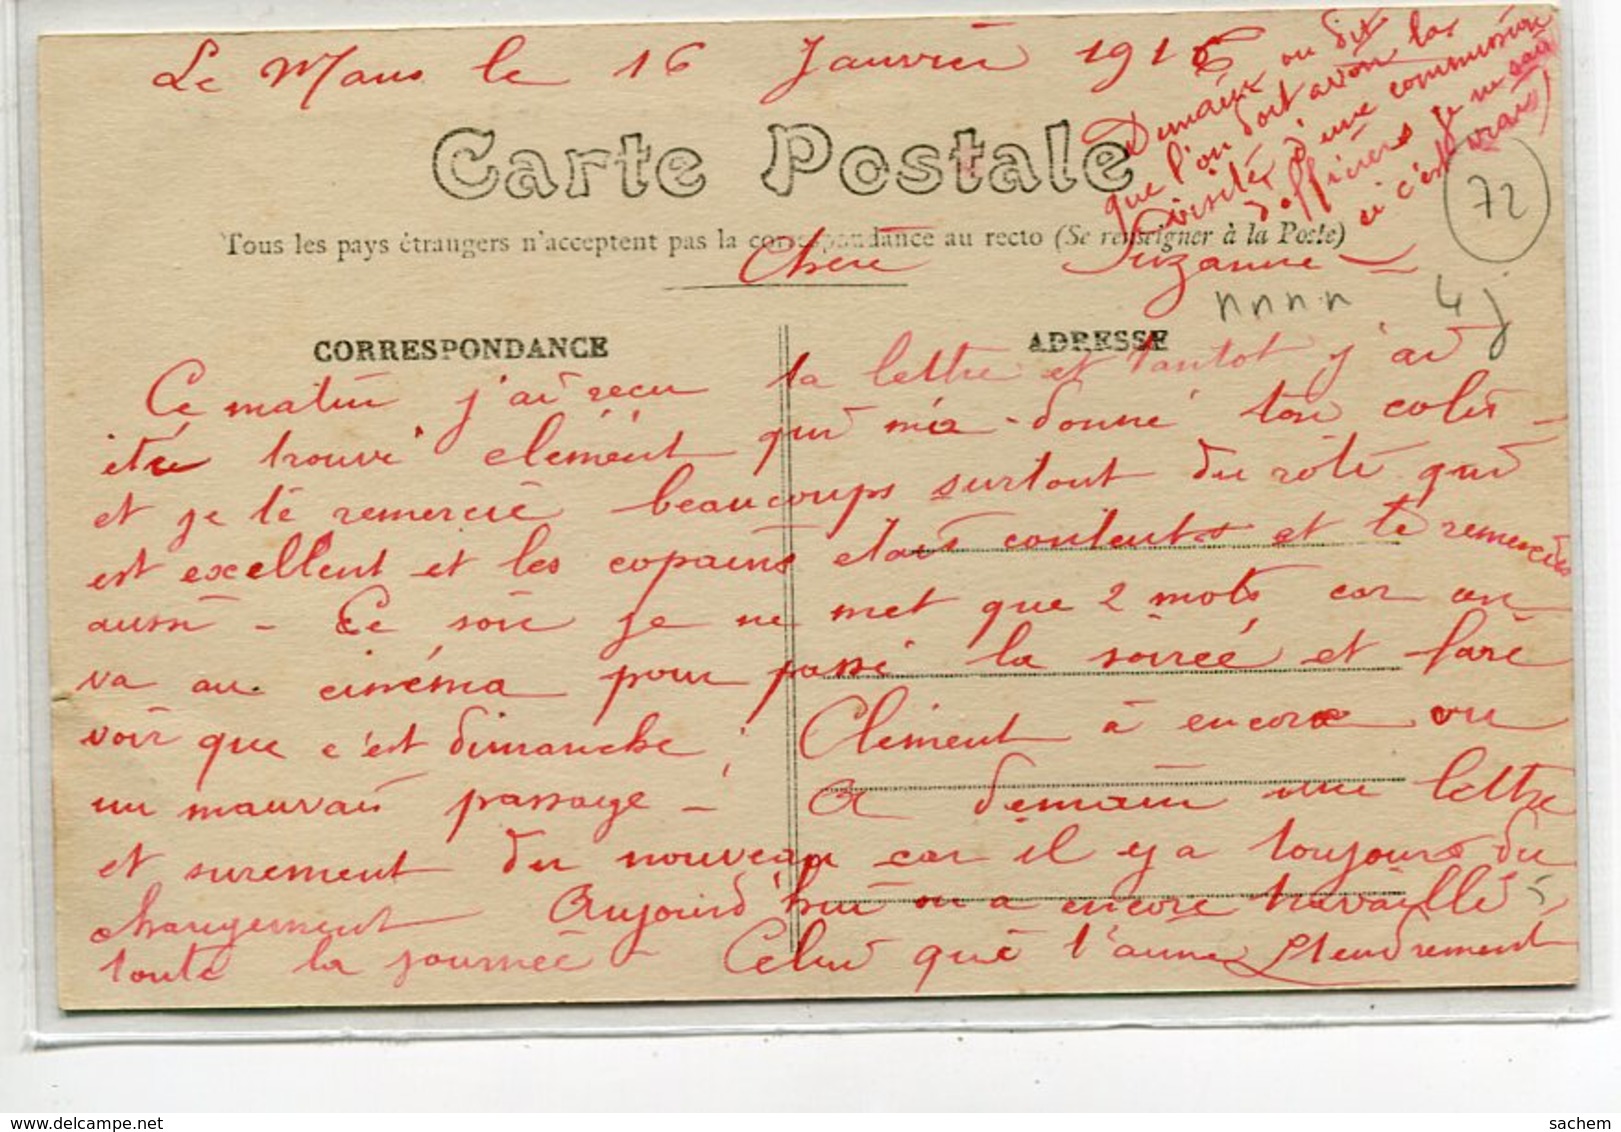 Le Mans le 16 Janvier 1916
Demain on dit
que l'on doit avoir la
visite d'une commission
d'officiers je ne sais
si c'est vrais)
Carte Postale
Tous les pays étrangers n'acceptent pas la correspondance au recto (Se renseigner à la Poste)
72
Chère Suzanne
nnnn 4j
CORRESPONDANCE
ADRESSE
Ce matin j'ai recu ta lettre et tantot j'ai
étée trouvé clément qui m'a donné ton colis
et je te remercie beaucoups surtout du roti qui
est excellent et les copains etais contents et te remercies
aussi - Ce soir je ne met que 2 mots car on
va au cinéma pour passé la soirée et faire
voir que c'est dimanche ; Clément à encore eu
un mauvais passage - A demain une lettre
et surement du nouveau car il y a toujours du
changement Aujourd'hui on a encore travaillé
toute la journée - Celui qui t'aime tendrement